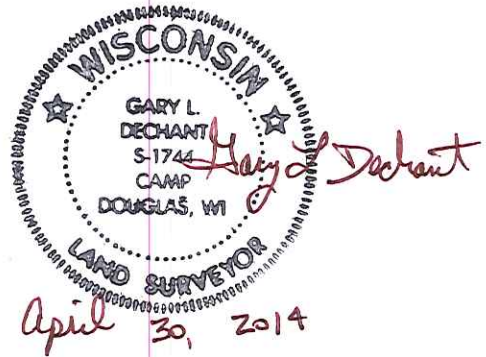 WISCONSIN
GARY L.
DECHANT
S-1744
CAMP
DOUGLAS, WI
LAND SURVEYOR
Gary L Dechant
April 30, 2014